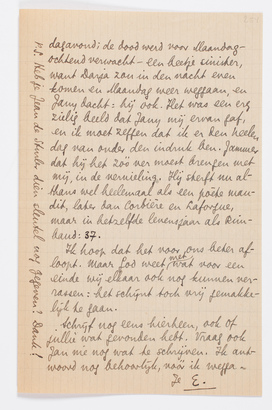 dagavond; de dood werd voor Maandag-
ochtend verwacht – een beetje sinister,
want Darja zou in den nacht even
komen en Maandag weer weggaan, en
Jany dacht: hij ook. Het was een erg
zielig beeld dat Jany mij ervan gaf,
en ik moet zeggen dat ik er een heele
dag van onder den indruk ben. Jammer
dat hij het zóó ver moest brengen met
mij, in de vernieling. Hij sterft nu al-
thans wel heelemaal als een poète mau-
dit, later dan Corbière en Laforgue,
maar in hetzelfde levensjaar als Rim-
baud: 37.
Ik hoop dat het voor ons beter af-
loopt. Maar God weet met wat voor een
einde wij elkaar ook nog kunnen ver-
rassen: het schijnt toch vrij gemakke-
lijk te gaan.
Schrijf nog eens hierheen, ook of
jullie wat gevonden hebt. Vraag ook
Jan me nog wat te schrijven. Ik ant-
woord nog behoorlijk, vóór ik wegga. –
Je E.
P.S. Heb je Jean de Sturler dien sleutel nog gegeven? Dank!